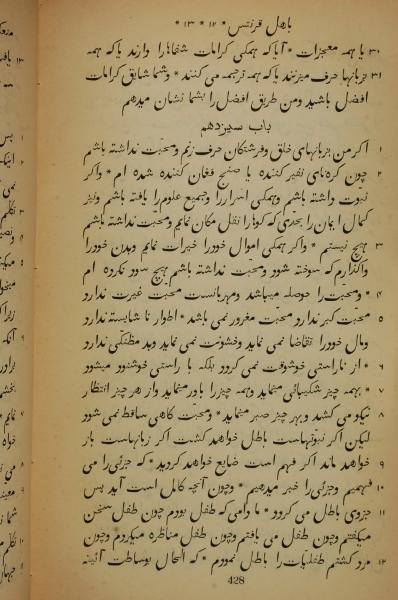 باهل قرنتس * ١٢ * ١٣ *
٣٠ یا همه معجزات * آیا که همکی کرامات شفاها را دارند یا که همه
٣١ بزبانها حرف میزنند یا که همه ترجمه می کنند * وشما شایق کرامات
افضل باشید ومن طریق افضل را بشما نشان میدهم
باب سیزدهم
١ اکر من بزبانهای خلق وفرشتکان حرف زنم ومحبّت نداشته باشم
٢ چون کره نای نفیر کننده یا صنج فغان کننده شده ام * واکر
نبوت داشته باشم وهمکی اسرار را وجمیع علوم را یافته باشم ونیز
کمال ایمان را بحدّی که کوه‌را نقل مکان نمایم ومحبّت نداشته باشم
٣ هیچ نیستم * واکر همکی اموال خودرا خیرات نمایم وبدن خودرا
واکذارم که سوخته شود ومحبّت نداشته باشم هیچ سود نکرده ام
٤ * ومحبت را حوصله میباشد ومهربانست محبّت غیرت ندارد
٥ محبّت کبر ندارد محبّت مغرور نمی باشد * اطوار نا شایسته ندارد
ومال خودرا تقاضا نمی نماید وخشونت نمی نماید وبد مظنّکی ندارد
٦ * از ناراستی خوشوقت نمی کردد بلکه با راستی خوشنود میشود
٧ * بهمه چیز شکیبائی مینماید وهمه چیزرا باور مینماید واز هر چیز انتظار
٨ نیکو می کشد وبهر چیز صبر مینماید * ومحبت کاهی ساقط نمی شود
لیکن اکر نبوتهاست باطل خواهد کشت اکر زبانهاست باز
٩ خواهد ماند اکر فهم است ضایع خواهد کردید * که جزئی را می
١٠ فهمیم وجزئی را خبر میدهیم * وچون آنچه کامل است آید پس
١١ جزوی باطل می کردد * ما دامی که طفل بودم چون طفل سخن
میکفتم وچون طفل می یافتم وچون طفل مناظره میکردم وچون
١٢ مرد کشتم طفلیات را باطل نمودم * که الحال بوساطت آئینه
428